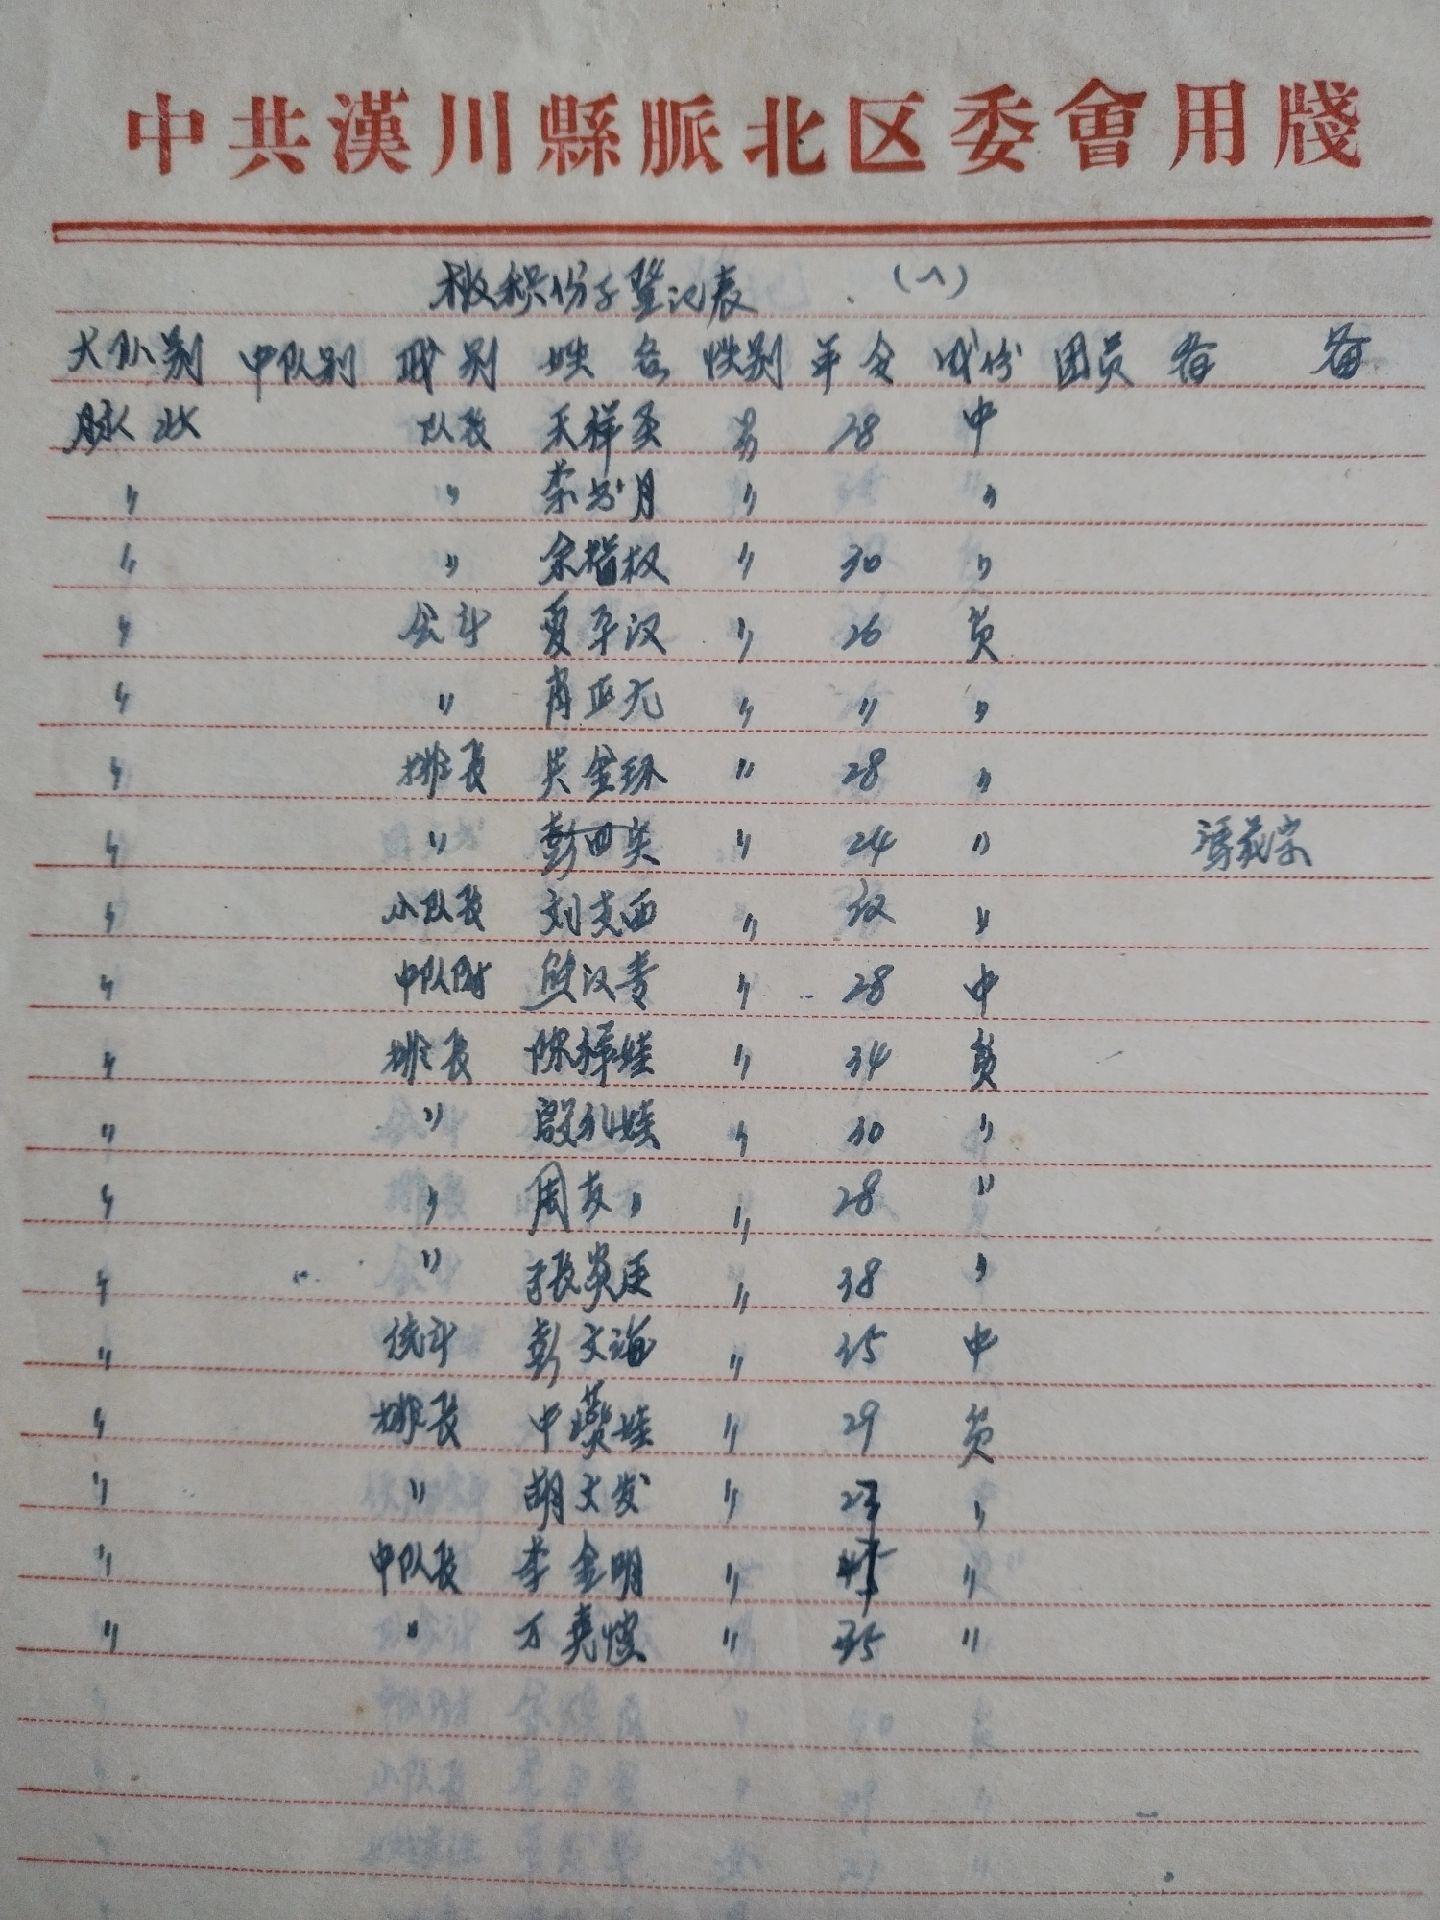 中共漢川縣脈北区委會用牋
积极份子登记表 (八)
大队别 中队别 职别 姓名 性别 年令 成份 团员 备 备
脉北 队长 王祥 男 28 中
〃 〃 月 〃 〃
〃 〃 余 权 〃 30 〃
〃 会计 夏平汉 〃 26 贫
〃 〃 肖正元 〃 〃 〃
〃 排长 吴金环 〃 28 〃
〃 〃 彭四英 〃 24 〃
〃 小队长 刘克西 〃 〃
〃 中队附 熊汉青 〃 28 中
〃 排长 陈 娃 〃 34 贫
〃 〃 殷 娃 〃 30 〃
〃 〃 周 〃 〃 28 〃
〃 〃 张 〃 38 〃
〃 统计 彭文海 〃 35 中
〃 排长 娃 〃 29 贫
〃 〃 胡文发 〃 〃
〃 中队长 李金明 〃 〃
〃 〃 万 〃 35 〃